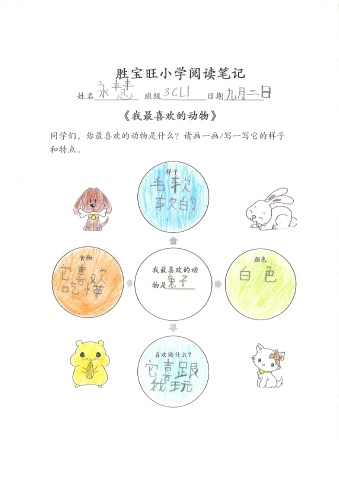 胜宝旺小学阅读笔记
姓名 永慧 班级 3CL1 日期 九月二日
《我最喜欢的动物》
同学们，你最喜欢的动物是什么？请画一画/写一写它的样子
和特点。
样子
毛软
软的
食物
它喜欢
吃
我最喜欢的动
物是 兔子
颜色
白色
喜欢做什么？
它喜跟
我玩